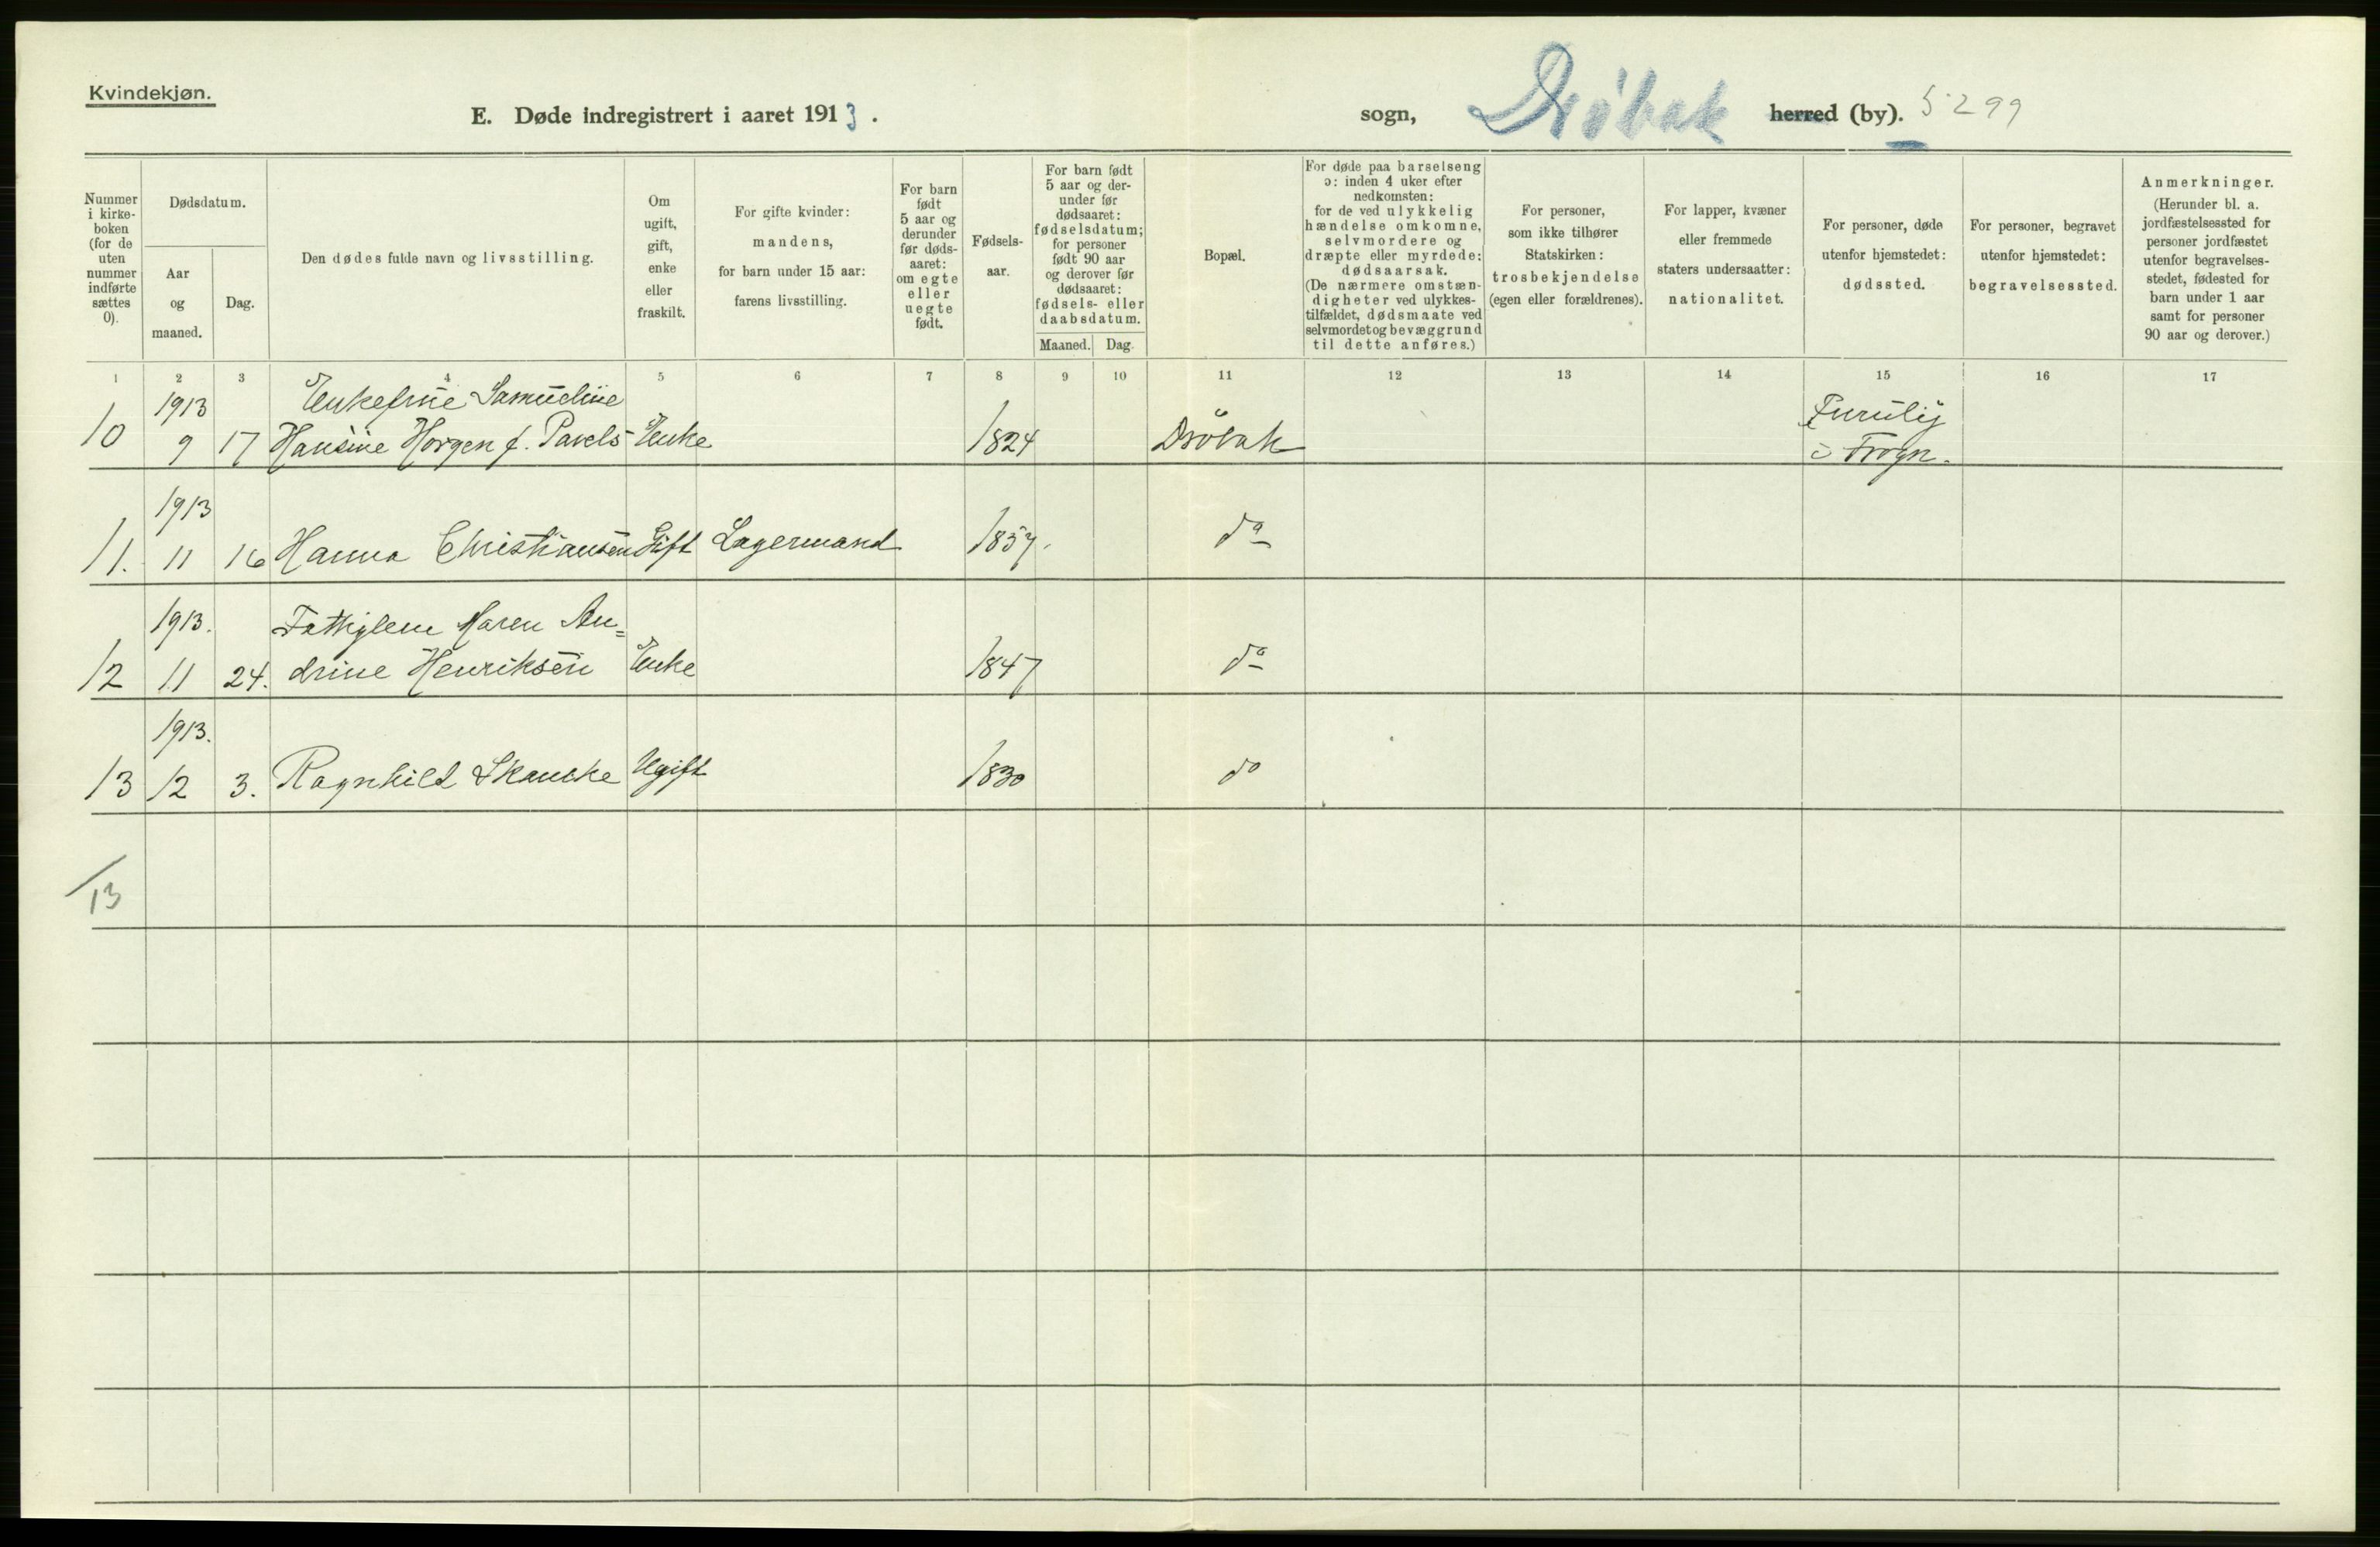 Kvindekjøn.
E. Døde indregistrert i aaret 1913.
sogn, Drøbak herred (by). 5299
Nummer i kirke-boken (for de uten nummer indførte sættes 0).
Dødsdatum.
Aar og maaned.
Dag.
Den dødes fulde navn og livsstilling.
Om ugift, gift, enke eller fraskilt.
For gifte kvinder: mandens, for barn under 15 aar: farens livsstilling.
For barn født 5 aar og derunder før døds-aaret: om egte eller uegte født.
Fødsels-aar.
For barn født 5 aar og der-under før dødsaaret: fødselsdatum; for personer født 90 aar og derover før dødsaaret: fødsels- eller daabsdatum.
Maaned. Dag.
Bopæl.
For døde paa barselseng ɔ: inden 4 uker efter nedkomsten: for de ved ulykkelig hændelse omkomne, selvmordere og dræpte eller myrdede: dødsaarsak. (De nærmere omstæn-digheter ved ulykkes-tilfældet, dødsmaate ved selvmordet og bevæggrund til dette anføres.)
For personer, som ikke tilhører Statskirken: trosbekjendelse (egen eller forældrenes).
For lapper, kvæner eller fremmede staters undersaatter: nationalitet.
For personer, døde utenfor hjemstedet: dødssted.
For personer, begravet utenfor hjemstedet: begravelsessted.
Anmerkninger. (Herunder bl. a. jordfæstelsessted for personer jordfæstet utenfor begravelses-stedet, fødested for barn under 1 aar samt for personer 90 aar og derover.)
1 2 3 4 5 6 7 8 9 10 11 12 13 14 15 16 17
1913 Enkefrue Samueline Furuly
10 9 17 Hansine Horgen f. Pavels Enke 1824 Drøbak i Frogn.
1913
11. 11 16 Hanna Christiansen Gift Lagermand 1857. do
1913. Fattiglem Maren An=
12 11 24. drine Henriksen Enke 1847 do
1913.
13 12 3. Ragnhild Skancke Ugift 1830 do
13